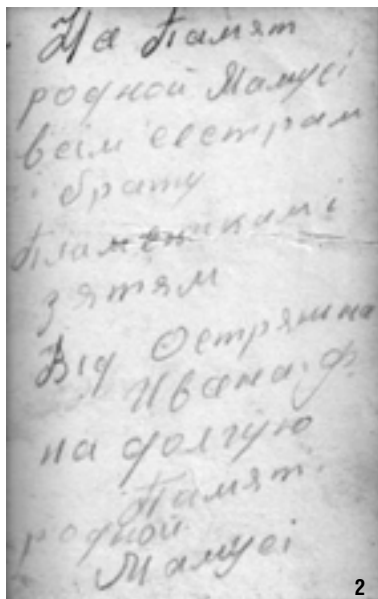 На Памят
родной Мамусі
всім сестрам
і брату
Пламеникам і
зятям
Від Острянина
Ивана. Ф.
на долгую
Памят.
родной
Мамусі
2